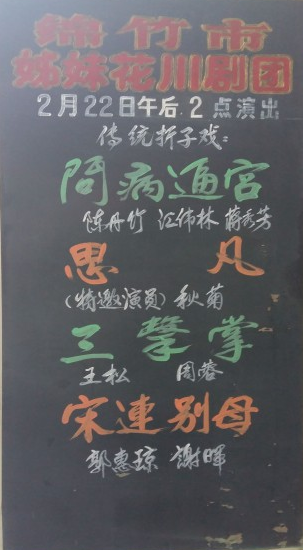 绵竹市
姊妹花川剧团
2月22日午后.2点演出
传统折子戏:
问病逼宫
陈丹竹 江伟林 蒋秀芳
思凡
(特邀演员) 秋菊
三击掌
王松 周蓉
宋連别母
郭惠琼 謝暉